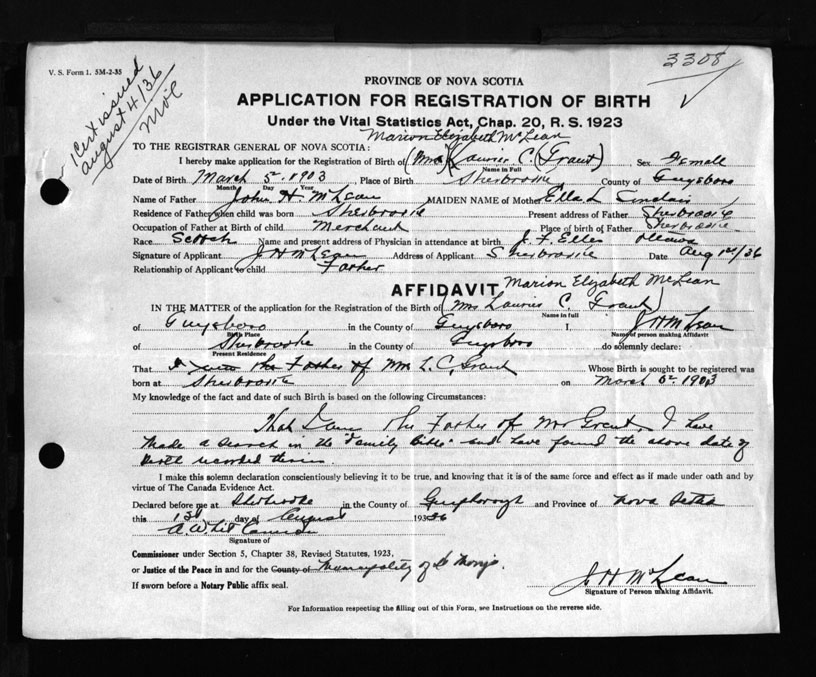 V. S. Form 1. 5M-2-35
3308
1 Cert issued
August 4/36
PROVINCE OF NOVA SCOTIA
APPLICATION FOR REGISTRATION OF BIRTH
Under the Vital Statistics Act, Chap. 20, R. S. 1923
Marion Elizabeth McLean
TO THE REGISTRAR GENERAL OF NOVA SCOTIA:
I hereby make application for the Registration of Birth of (Mrs Laurier C. Grant) Sex Female
Name in Full
Date of Birth March 5, 1903, Place of Birth Sherbrooke County of Guysboro
Month Day Year
Name of Father John H. McLean MAIDEN NAME of Mother Ella L Sinclair
Residence of Father when child was born Sherbrooke Present address of Father Sherbrooke
Occupation of Father at birth of child Merchant Place of Birth of Father Sherbrooke
Race Scotch Name and present address of Physician in attendance at birth J. F. Elles Ottawa
Signature of Applicant J H McLean Address of Applicant Sherbrooke Date Aug 1st/36
Relationship of Applicant to child Father
AFFIDAVIT Marion Elizabeth McLean
IN THE MATTER of the application for the Registration of the Birth of (Mrs Laurier C. Grant)
Name in full
of Guysboro in the County of Guysboro I, J H McLean
Birth Place Name of person making Affidavit
of Sherbrooke in the County of Guysboro do solemnly declare:
Present Residence
That I the Father of Mrs L. C. Grant Whose Birth is sought to be registered was
born at Sherbrooke on March 5, 1903
My knowledge of the fact and date of such Birth is based on the following Circumstances:
That I am the Father of Mrs Grant, I have
made a search in the "Family Bible" and have found the above date of
Birth recorded therein.
I make this solemn declaration conscientiously believing it to be true, and knowing that it is of the same force and effect as if made under oath and by
virtue of The Canada Evidence Act.
Declared before me at Sherbrooke in the County of Guysborough and Province of Nova Scotia
this 1st day of August 1936
Signature of
Commissioner under Section 5, Chapter 38, Revised Statutes, 1923,
or Justice of the Peace in and for the County of Municipality of St Marys.
If sworn before a Notary Public affix seal.
J H McLean
Signature of Person making Affidavit.
For Information respecting the filling out of this Form, see Instructions on the reverse side.